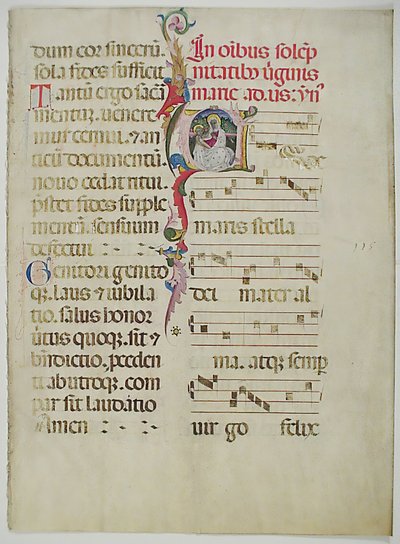 dum cor sincerū.
sola fides sufficit
Tantū ergo sacrā
mentuꝫ. venere
mur cernui. ⁊ an
ticū documentū.
novo cedat ritui.
p̄stet fides supple
mentū. sensuum
defectui
Genitori genito
qꝫ. laus ⁊ iubila
tio. salus honor
virtus quoqꝫ. sit ⁊
bn̄dictio. p̄ceden
ti ab utroqꝫ. com
par sit laudatio
Amen
In oībus solēp
nitatibꝰ v̄ginis
marie ad. vs: yn̄
A ve
maris stella
dei mater al
ma. atqꝫ semp̄
uir go felix